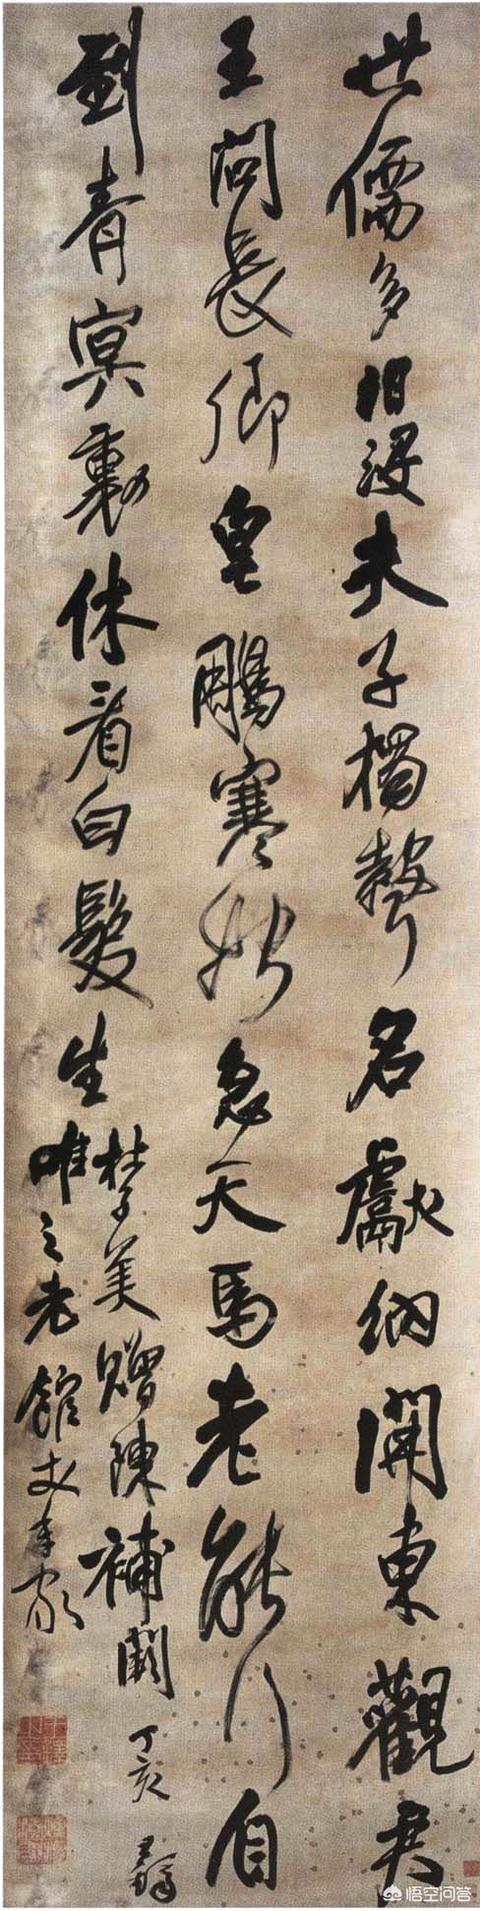 世儒多汩沒夫子獨聲名獻納開東觀君
王問長卿皂鵰寒始急天馬老能行自
到青冥裏休看白髮生
杜子美贈陳補闕 丁亥
唯之老館丈
悟空问答